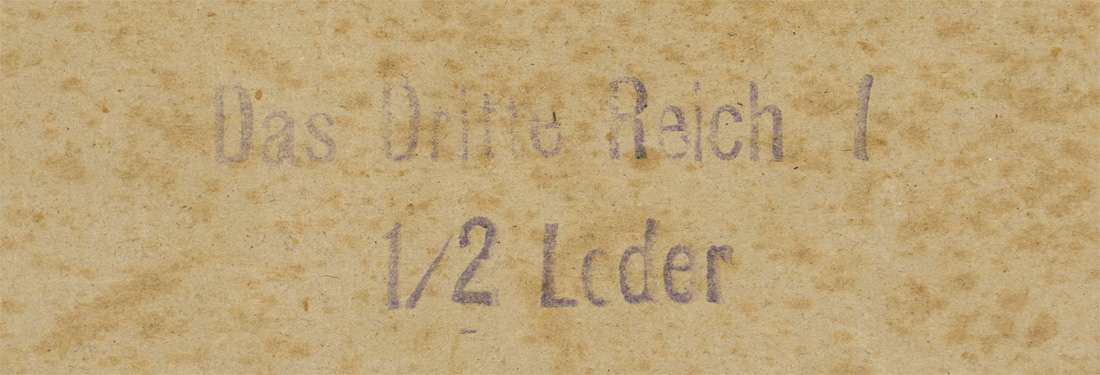 Das Dritte Reich I
1/2 Leder